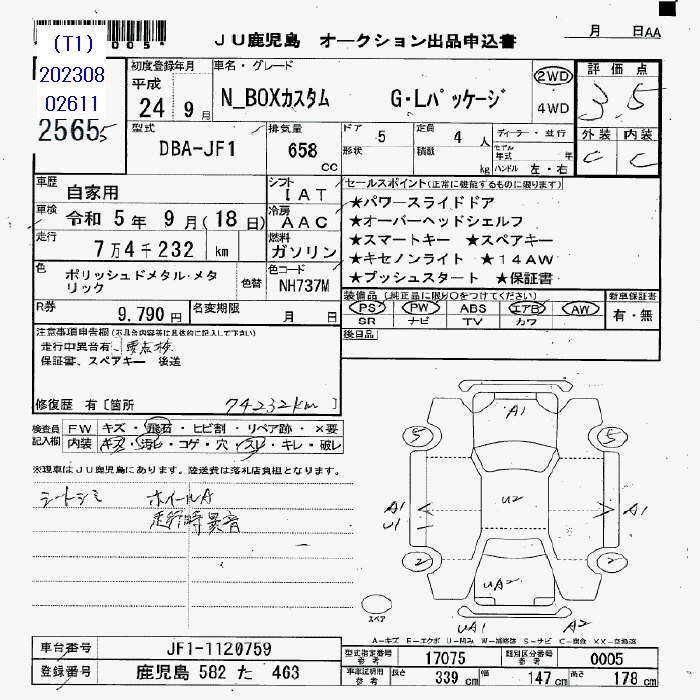 (T1)
202308
02611
2565
005
ＪＵ鹿児島 オークション出品申込書
月 日AA
初度登録年月
平成
24 9月
車名・グレード
N_BOXカスタム G・Lパッケージ
2WD
4WD
評価点
3.5
外装 内装
C C
型式
DBA-JF1
排気量
658
CC
ドア 5
形状
定員 4 人
積載 kg
ディーラー・並行
モデル年式 年
ハンドル 左・右
車歴 自家用
シフト IAT
車検 令和 5年 9月(18日)
冷房 AAC
走行 7万4千232 km
燃料 ガソリン
セールスポイント(正常に機能するものに限ります)
★パワースライドドア
★オーバーヘッドシェルフ
★スマートキー ★スペアキー
★キセノンライト ★14AW
★プッシュスタート ★保証書
色 ポリッシュドメタル・メタリック
色替
色コード NH737M
装備品(純正品に限り○をつけてください)
PS PW ABS エアB AW
SR ナビ TV カワ
新車保証書
有・無
R券 9,790円
名変期限 月 日
後日品
注意事項申告欄(不具合内容等は具体的に記入して下さい)
走行中異音有り要点検
保証書、スペアキー 後送
修復歴 有[箇所 74232km]
検査員記入欄
FW キズ・飛石・ヒビ割・リペア跡・×要
内装 キズ・汚レ・コゲ・穴・スレ・キレ・破レ
※現車はＪＵ鹿児島にあります。陸送費は落札店負担となります。
シートシミ ホイールA
走行時異音
A1
5 5
U2
A1
U1
A1
2 2
UA2
スペア
UA1 A2
A－キズ E－エクボ U－凹み W－補修跡 S－サビ C－腐食 XX－交換済
車台番号 JF1-1120759
登録番号 鹿児島 582 た 463
型式指定番号 参考 17075
類別区分番号 参考 0005
車庫証明用 参考
長さ 339 cm 幅 147 cm 高さ 178 cm